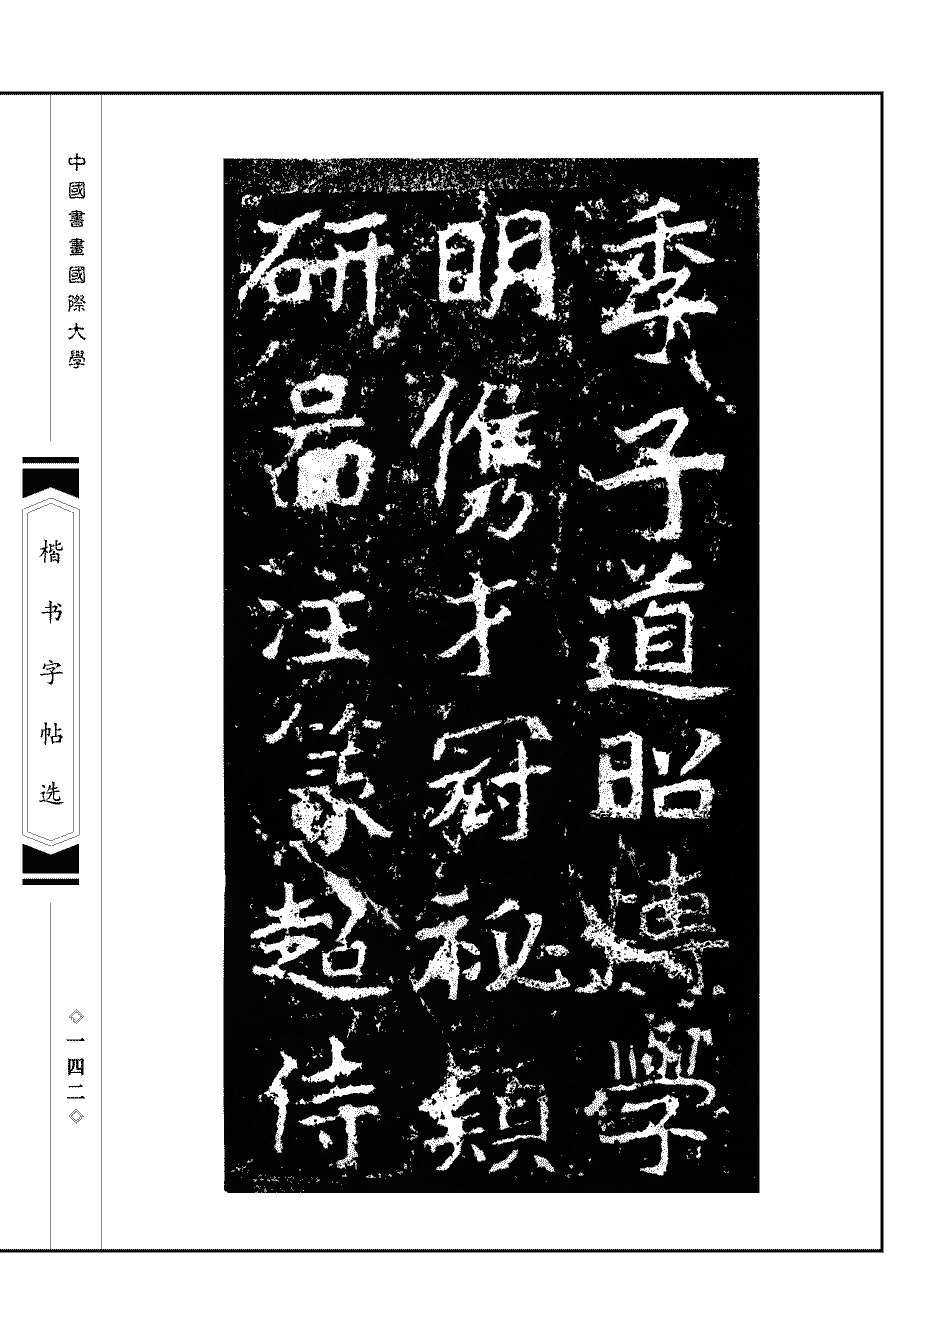 季子道昭博學
明儁才冠祕穎
研啚注篆超侍
中國書畫國際大學
楷书字帖选
一四二